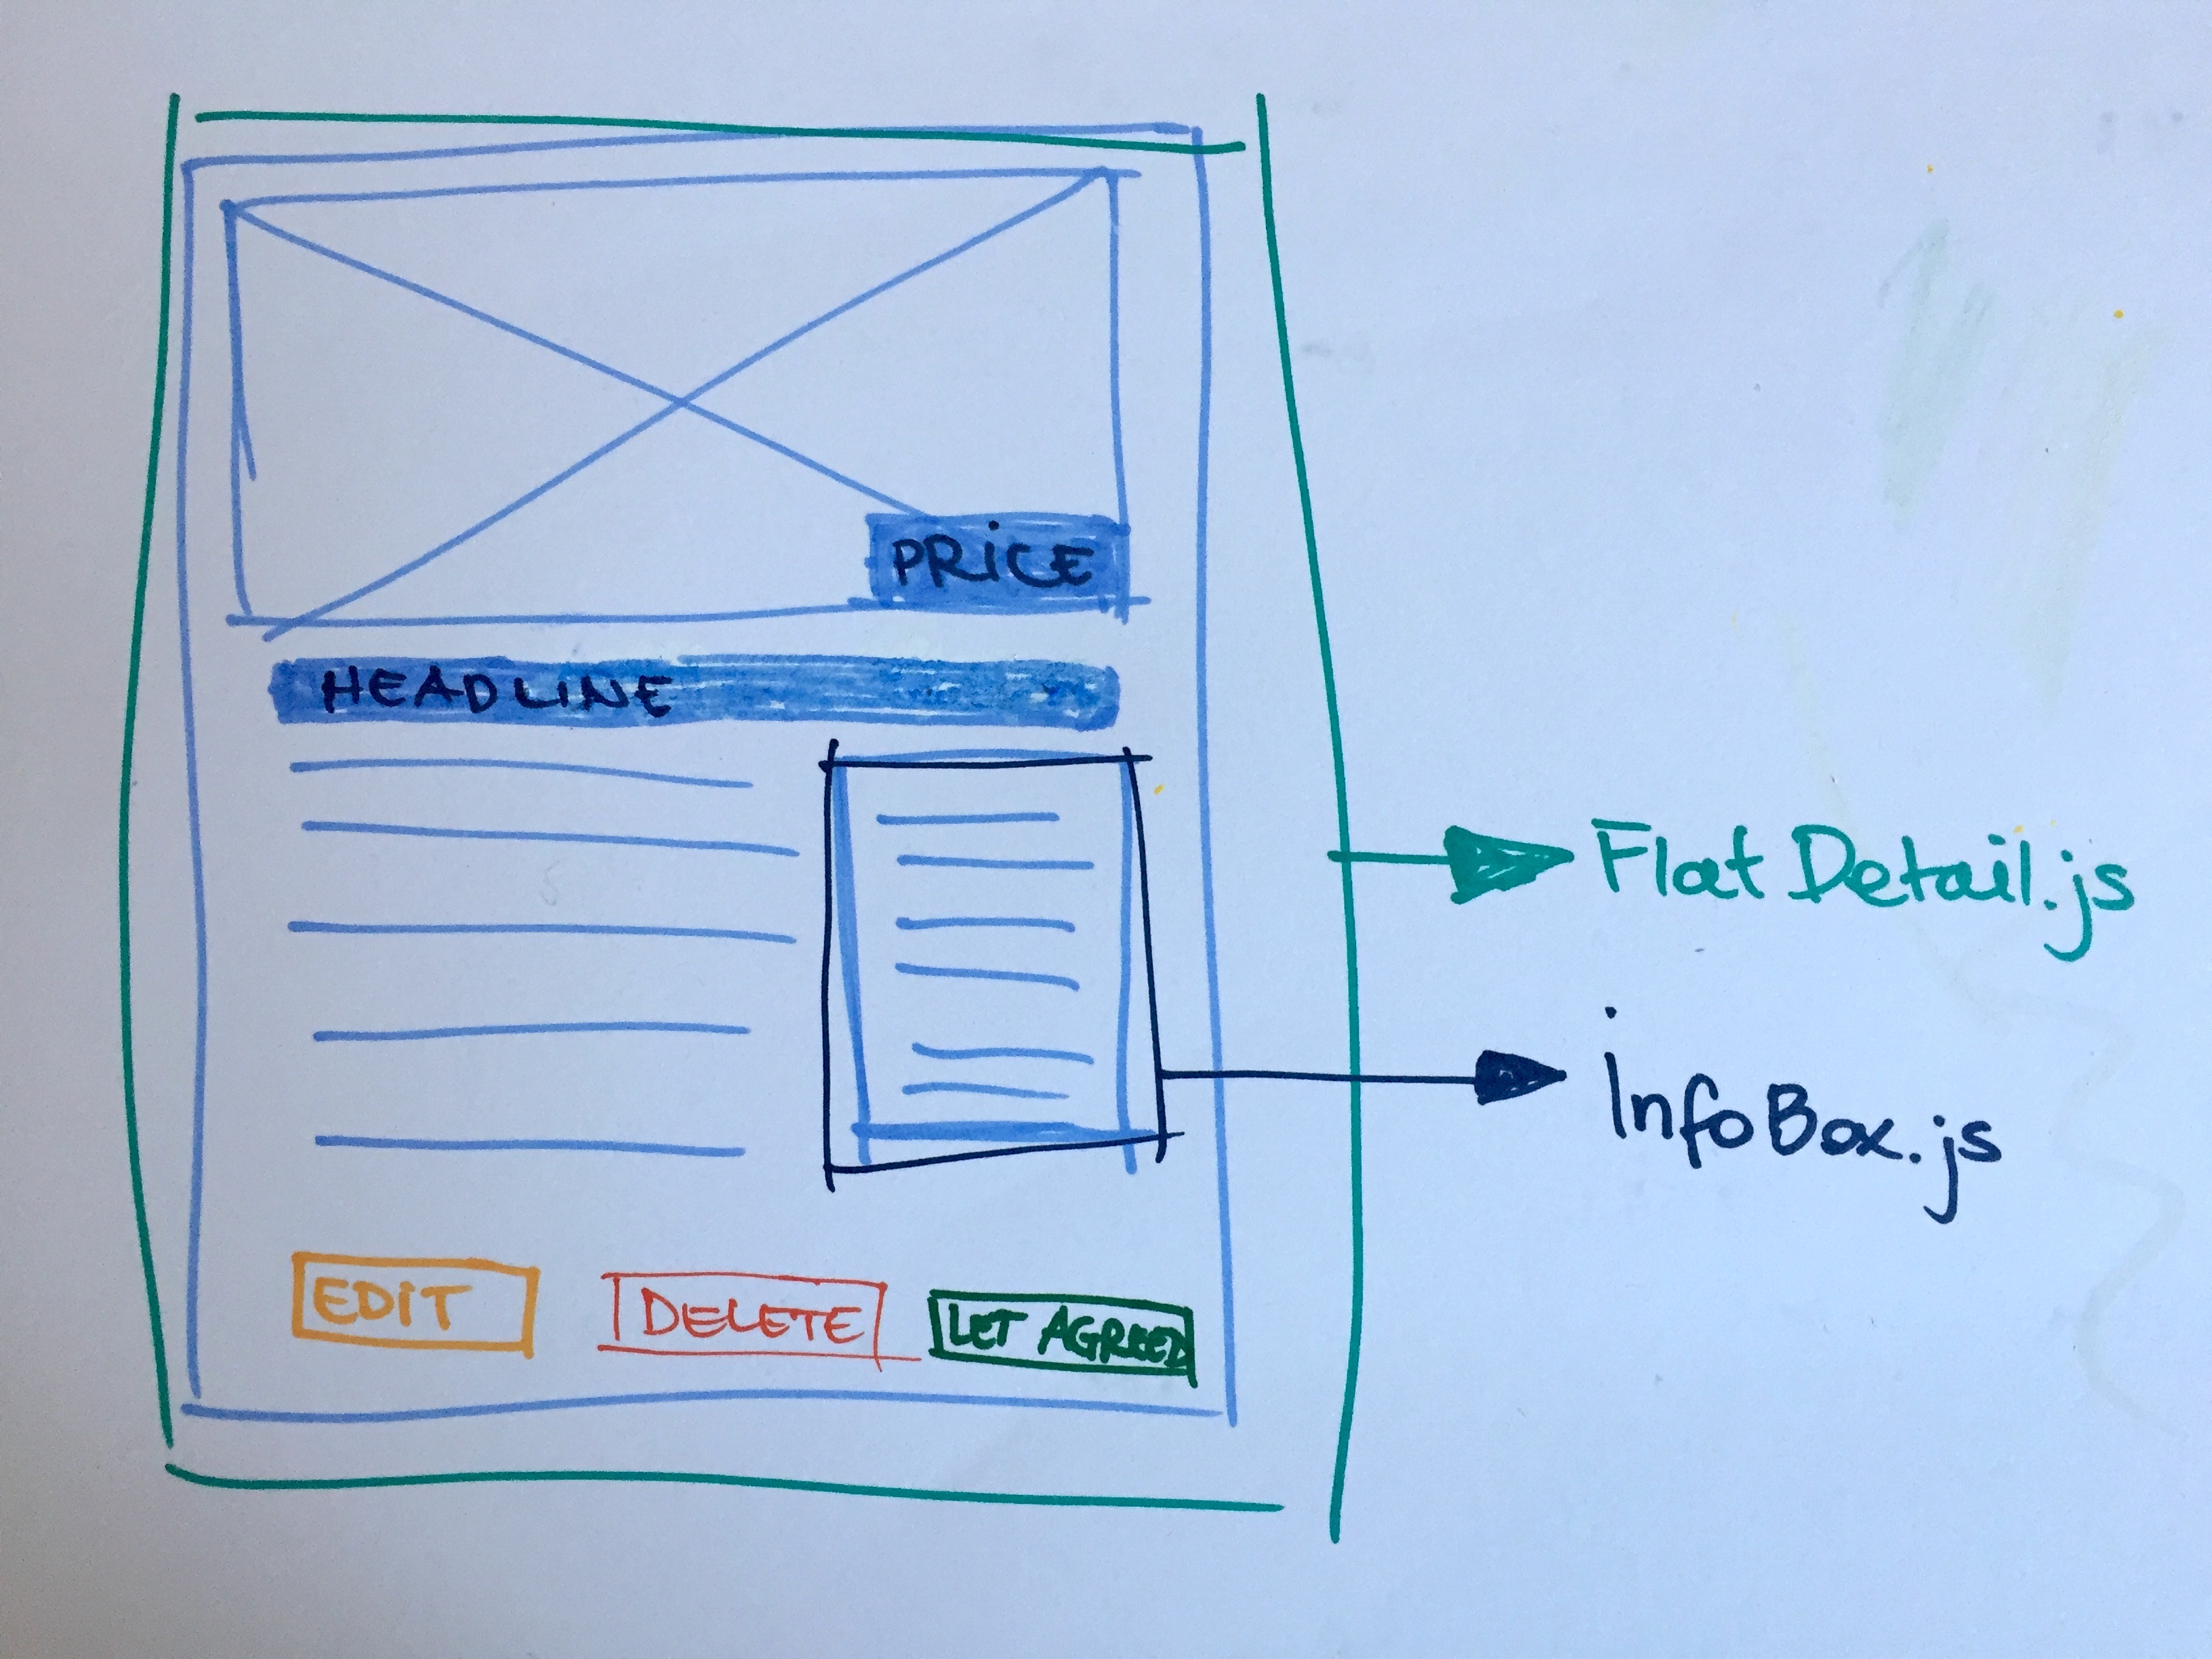 PRICE
HEADLINE
Flat Detail.js
InfoBox.js
EDIT
DELETE
LET AGREED